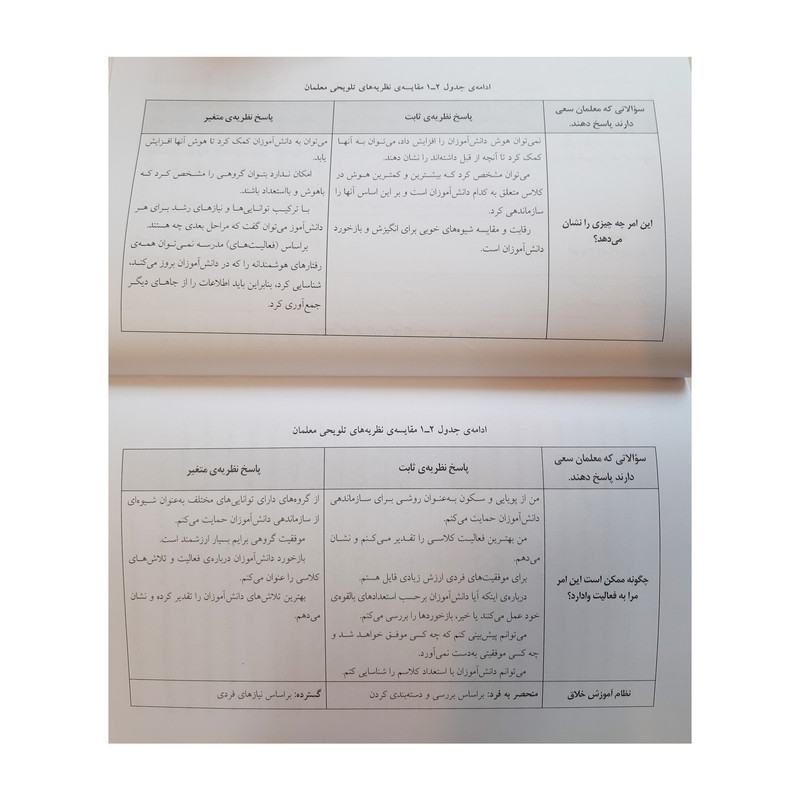 ادامه‌ی جدول ۲ـ۱ مقایسه‌ی نظریه‌های تلویحی معلمان
سؤالاتی که معلمان سعی
دارند پاسخ دهند.
پاسخ نظریه‌ی ثابت
پاسخ نظریه‌ی متغیر
این امر چه چیزی را نشان
می‌دهد؟
نمی‌توان هوش دانش‌آموزان را افزایش داد، می‌توان به آنها
کمک کرد تا آنچه از قبل داشته‌اند را نشان دهند.
می‌توان مشخص کرد که بیشترین و کمترین هوش در
کلاس متعلق به کدام دانش‌آموزان است و بر این اساس آنها را
سازماندهی کرد.
رقابت و مقایسه شیوه‌های خوبی برای انگیزش و بازخورد
دانش‌آموزان است.
می‌توان به دانش‌آموزان کمک کرد تا هوش آنها افزایش
یابد.
امکان ندارد بتوان گروهی را مشخص کرد که
باهوش و بااستعداد باشند.
با ترکیب توانایی‌ها و نیازهای رشد برای هر
دانش‌آموز می‌توان گفت که مراحل بعدی چه هستند.
براساس (فعالیت‌های) مدرسه نمی‌توان همه‌ی
رفتارهای هوشمندانه را که در دانش‌آموزان بروز می‌کند،
شناسایی کرد، بنابراین باید اطلاعات را از جاهای دیگر
جمع‌آوری کرد.
ادامه‌ی جدول ۲ـ۱ مقایسه‌ی نظریه‌های تلویحی معلمان
سؤالاتی که معلمان سعی
دارند پاسخ دهند.
پاسخ نظریه‌ی ثابت
پاسخ نظریه‌ی متغیر
چگونه ممکن است این امر
مرا به فعالیت وادارد؟
من از پویایی و سکون به‌عنوان روشی برای سازماندهی
دانش‌آموزان حمایت می‌کنم.
من بهترین فعالیت کلاسی را تقدیر می‌کنم و نشان
می‌دهم.
برای موفقیت‌های فردی ارزش زیادی قایل هستم.
درباره‌ی اینکه آیا دانش‌آموزان برحسب استعدادهای بالقوه‌ی
خود عمل می‌کنند یا خیر، بازخوردها را بررسی می‌کنم.
می‌توانم پیش‌بینی کنم که چه کسی موفق خواهد شد و
چه کسی موفقیتی به‌دست نمی‌آورد.
می‌توانم دانش‌آموزان با استعداد کلاسم را شناسایی کنم.
از گروه‌های دارای توانایی‌های مختلف به‌عنوان شیوه‌ای
از سازماندهی دانش‌آموزان حمایت می‌کنم.
موفقیت گروهی برایم بسیار ارزشمند است.
بازخورد دانش‌آموزان درباره‌ی فعالیت و تلاش‌های
کلاسی را عنوان می‌کنم.
بهترین تلاش‌های دانش‌آموزان را تقدیر کرده و نشان
می‌دهم.
نظام آموزش خلاق
منحصر به فرد: براساس بررسی و دسته‌بندی کردن
گسترده: براساس نیازهای فردی